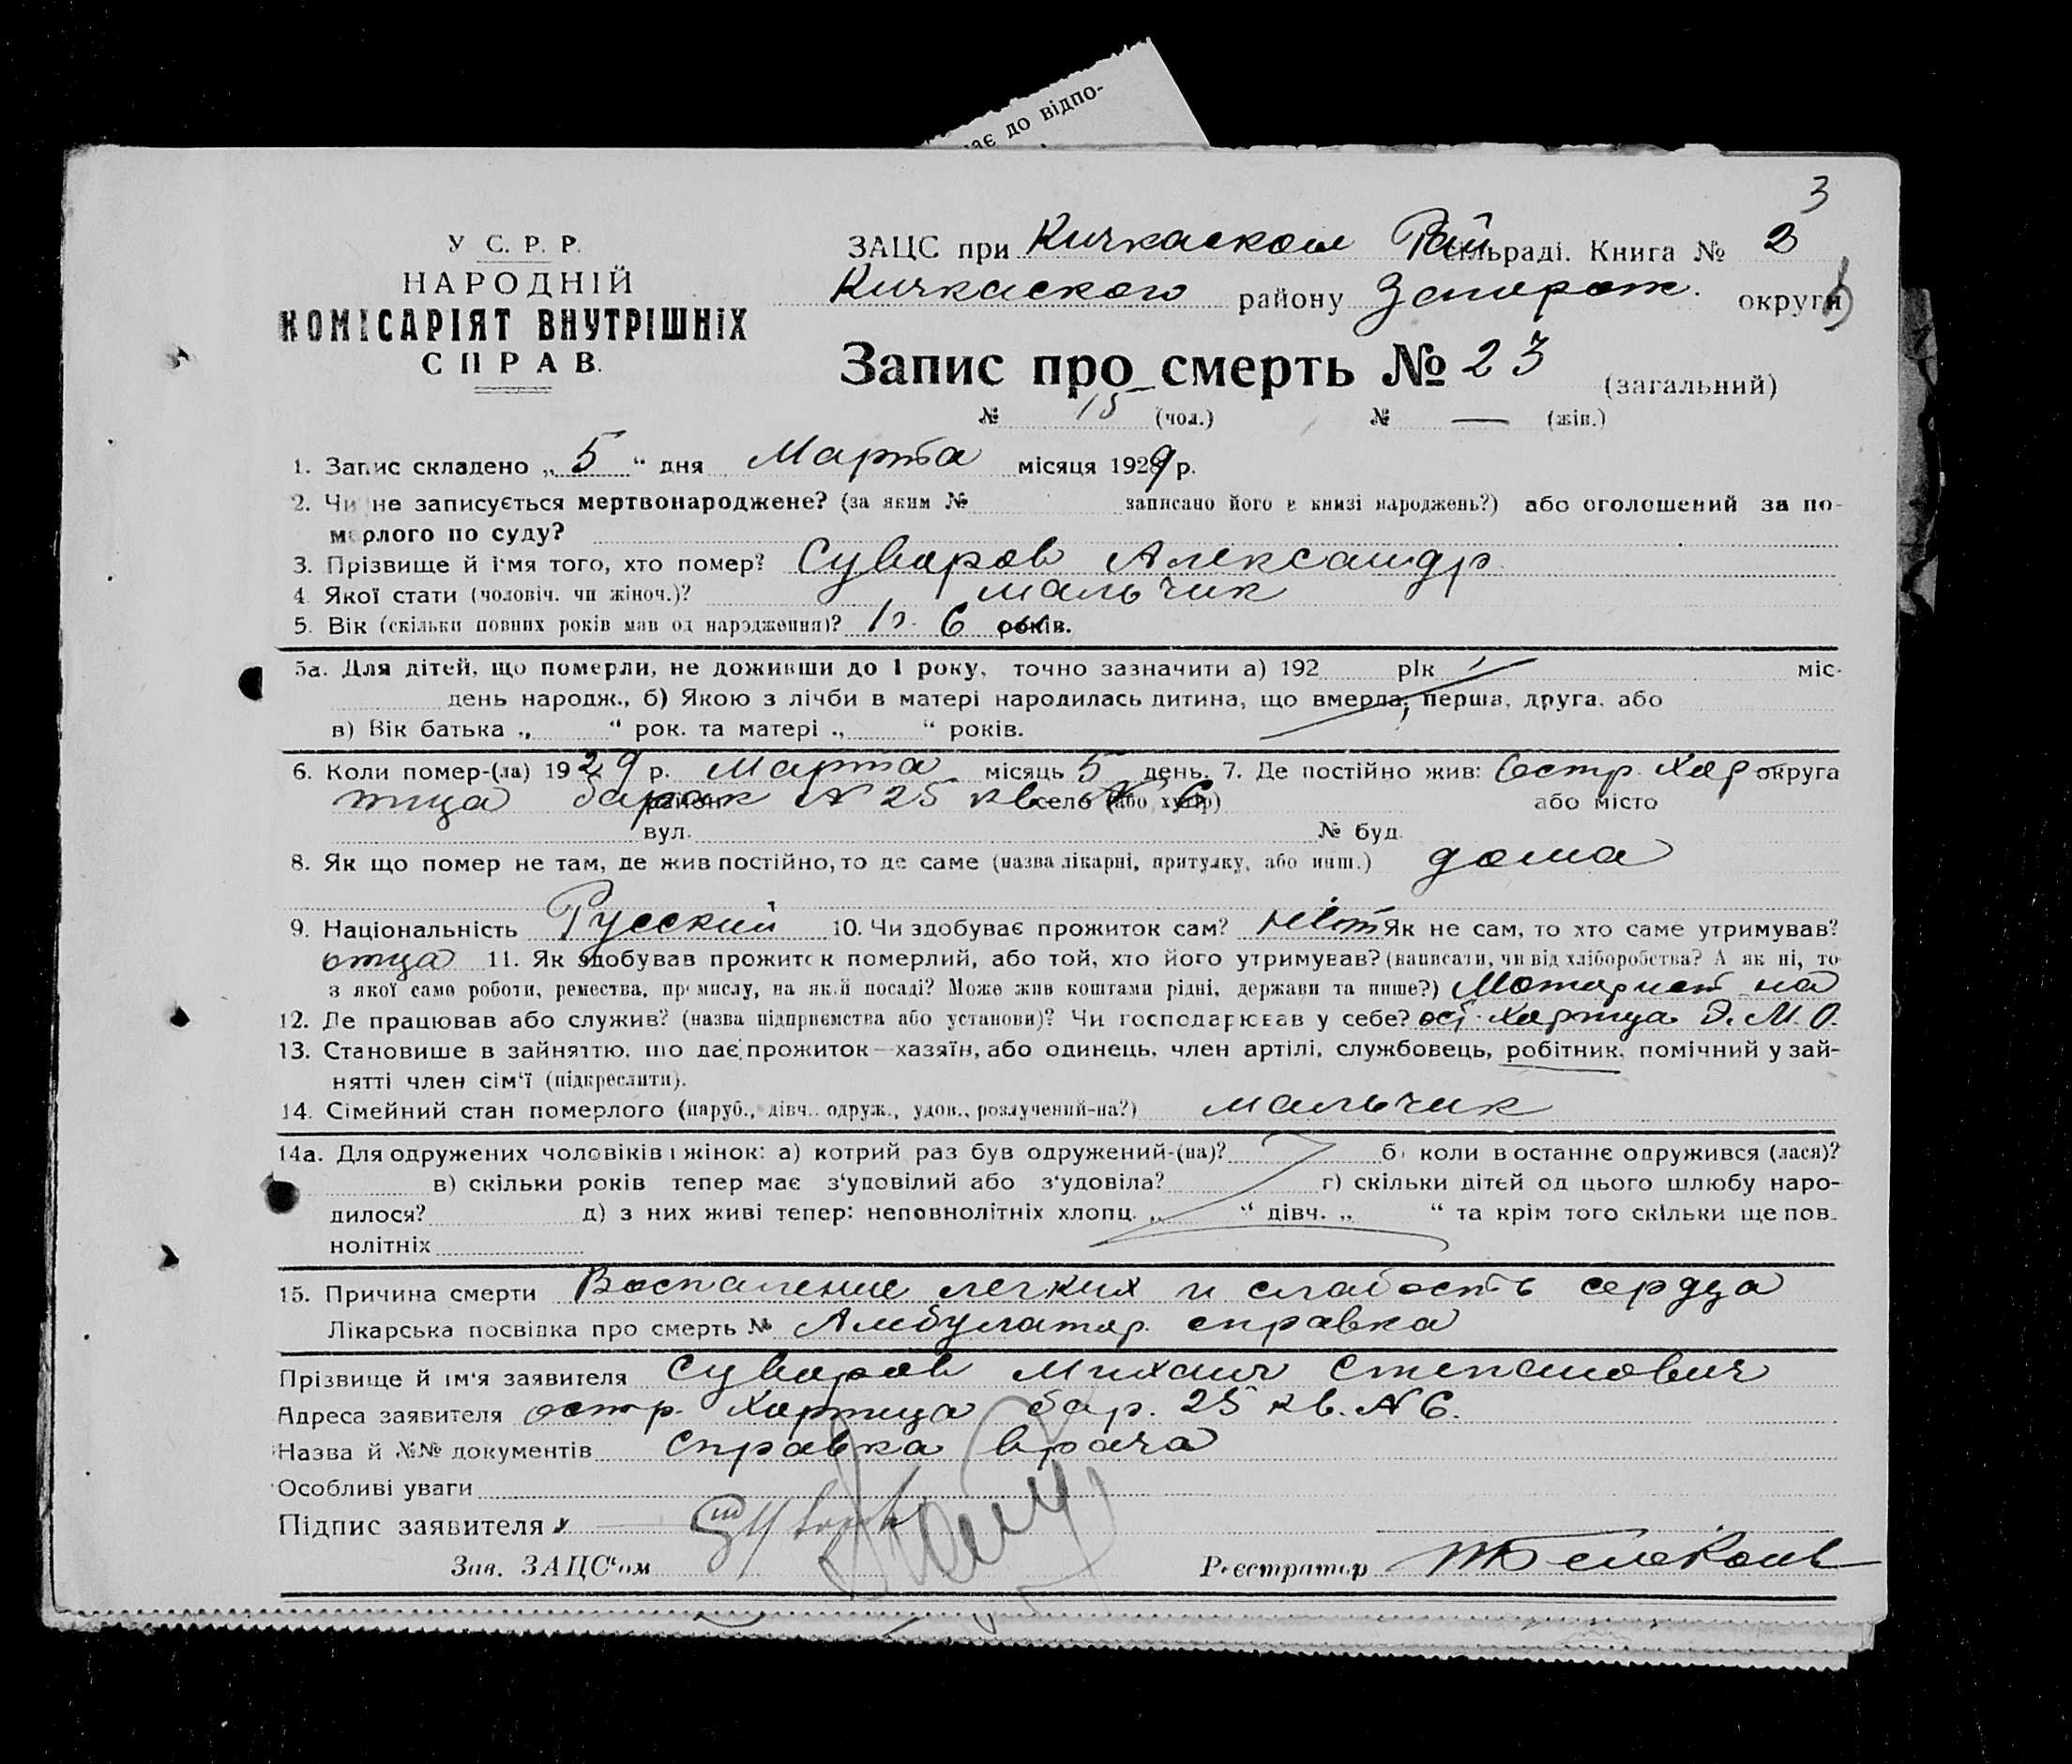 ає до відпо-
3
У С. Р. Р.
НАРОДНІЙ
КОМІСАРІЯТ ВНУТРІШНІХ
СПРАВ.
ЗАЦС при Кичкаском Рай сільраді. Книга № 2
Кичкаского району Запорож. округи
Запис про смерть № 23 (загальний)
№ 15 (чол.) № — (жін.)
1. Запис складено „5“ дня Марта місяця 1929 р.
2. Чи не записується мертвонароджене? (за яким № записано його в книзі народжень?) або оголошений за по-
мерлого по суду?
3. Прізвище й ім'я того, хто помер? Суворов Александр
4. Якої стати (чоловіч. чи жіноч.)? мальчик
5. Вік (скільки повних років мав од народження)? 1 г. 6 років.
5а. Для дітей, що померли, не доживши до 1 року, точно зазначити а) 192 рік міс-
день народж., б) Якою з лічби в матері народилась дитина, що вмерла, перша, друга, або
в) Вік батька „ “ рок. та матері „ “ років.
6. Коли помер-(ла) 1929 р. Марта місяць 5 день. 7. Де постійно жив: Остр. Хор округа
тица барак № 25 кв. № 6 село (або хутір) або місто
вул. № буд.
8. Як що помер не там, де жив постійно, то де саме (назва лікарні, притулку, або инш.) дома
9. Національність Русский 10. Чи здобуває прожиток сам? нет Як не сам, то хто саме утримував?
отца 11. Як здобував прожиток померлий, або той, хто його утримував? (написати, чи від хліборобства? А як ні, то
з якої само роботи, ремества, промислу, на якій посаді? Може жив коштами рідні, держави та инше?) Моторист на
12. Де працював або служив? (назва підприємства або установи)? Чи господарював у себе? ост. Хортица Э. М. О.
13. Становише в зайняттю, що дає прожиток—хазяїн, або одинець, член артілі, службовець, робітник, помічний у зай-
нятті член сім'ї (підкреслити).
14. Сімейний стан померлого (паруб., дівч. одруж., удов., розлучений-на?) мальчик
14а. Для одружених чоловіків і жінок: а) котрий раз був одружений-(на)? б) коли в останнє одружився (лася)?
в) скільки років тепер має з'уповілий або з'удовіла? г) скільки дітей од цього шлюбу наро-
дилося? д) з них живі тепер: неповнолітніх хлопц. „ “ дівч. „ “ та крім того скільки ще пов-
нолітніх
15. Причина смерти Воспаление легких и слабость сердца
Лікарська посвідка про смерть № Амбулатор. справка
Прізвище й ім'я заявителя Суворов Михаил Степанович
Адреса заявителя остр. Хортица бар. 25 кв. № 6.
Назва й №№ документів Справка врача
Особливі уваги
Підпис заявителя
Зав. ЗАЦС'ом Реєстратор